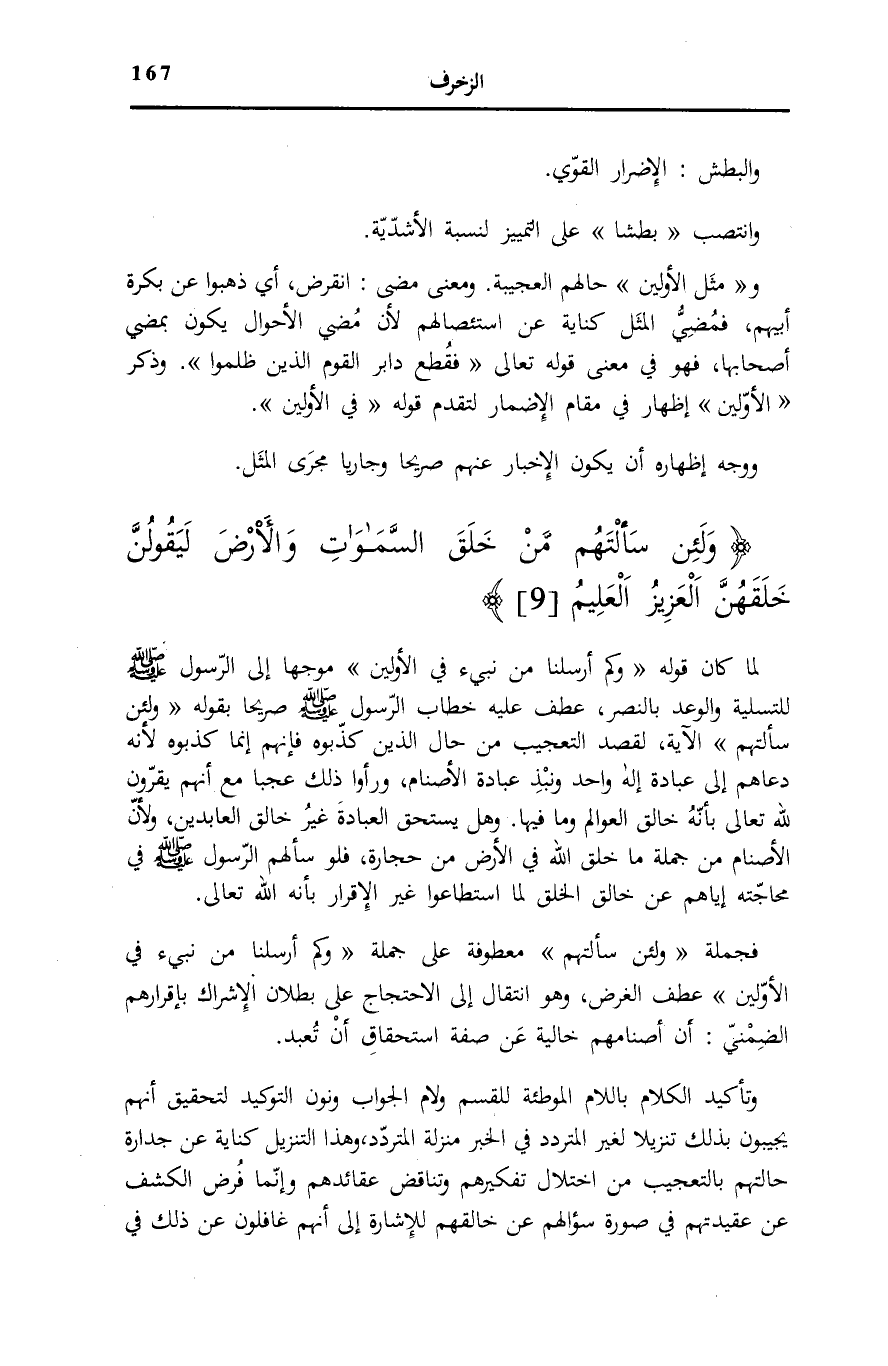 167
الزخرف
والبطش : الإضرار القوّي.
وانتصب « بطشا » على التمييز لنسبة الأشدّيّة.
و« مثَل الأولين » حالهم العجيبة. ومعنى مضى : انقرض، أي ذهبوا عن بكرة
أبيهم، فمُضِيُّ المثَل كناية عن استئصالهم لأن مُضي الأحوال يكون بمضي
أصحابها، فهو في معنى قوله تعالى « فقُطع دابر القوم الذين ظلموا ». وذكر
« الأوّلين » إظهار في مقام الإضمار لتقدم قوله « في الأولين ».
ووجه إظهاره أن يكون الإخبار عنهم صريحا وجاريا مجرَى المثَل.
﴿ وَلَئِن سَأَلْتَهُم مَّنْ خَلَقَ السَّمَـٰوَٰتِ وَالْأَرْضَ لَيَقُولُنَّ
خَلَقَهُنَّ اَلْعَزِيزُ اَلْعَلِيمُ [9] ﴾
لما كان قوله « وكم أرسلنا من نبيء في الأولين » موجها إلى الرّسول ﷺ
للتسلية والوعد بالنصر، عطف عليه خطاب الرّسول ﷺ صريحا بقوله « ولئن
سألتهم » الآية، لقصد التعجيب من حال الذين كذّبوه فإنهم إنما كذبوه لأنه
دعاهم إلى عبادة إلهٰ واحد ونبْذِ عبادة الأصنام، ورأوا ذلك عجبا مع أنهم يقرّون
لله تعالى بأنّهُ خالق العوالم وما فيها. وهل يستحق العبادةَ غيرُ خالق العابدين، ولأنّ
الأصنام من جملة ما خلق الله في الأرض من حجارة، فلو سألهم الرّسول ﷺ في
محاجّته إياهم عن خالق الخلق لما استطاعوا غير الإقرار بأنه الله تعالى.
فجملة « ولئن سألتهم » معطوفة على جملة « وكم أرسلنا من نبيء في
الأوّلين » عطف الغرض، وهو انتقال إلى الاحتجاج على بطلان الإشراك بإقرارهم
الضِمْنيّ : أن أصنامهم خالية عَن صفة استحقاقِ أنْ تُعبد.
وتأكيد الكلام باللام الموطئة للقسم ولام الجواب ونون التوكيد لتحقيق أنهم
يجيبون بذلك تنزيلا لغير المتردد في الخبر منزلة المتردّد،وهذا التنزيل كناية عن جدارة
حالتهم بالتعجيب من اختلال تفكيرهم وتناقض عقائدهم وإنّما فُرض الكشف
عن عقيدتهم في صورة سؤالهم عن خالقهم للإشارة إلى أنهم غافلون عن ذلك في